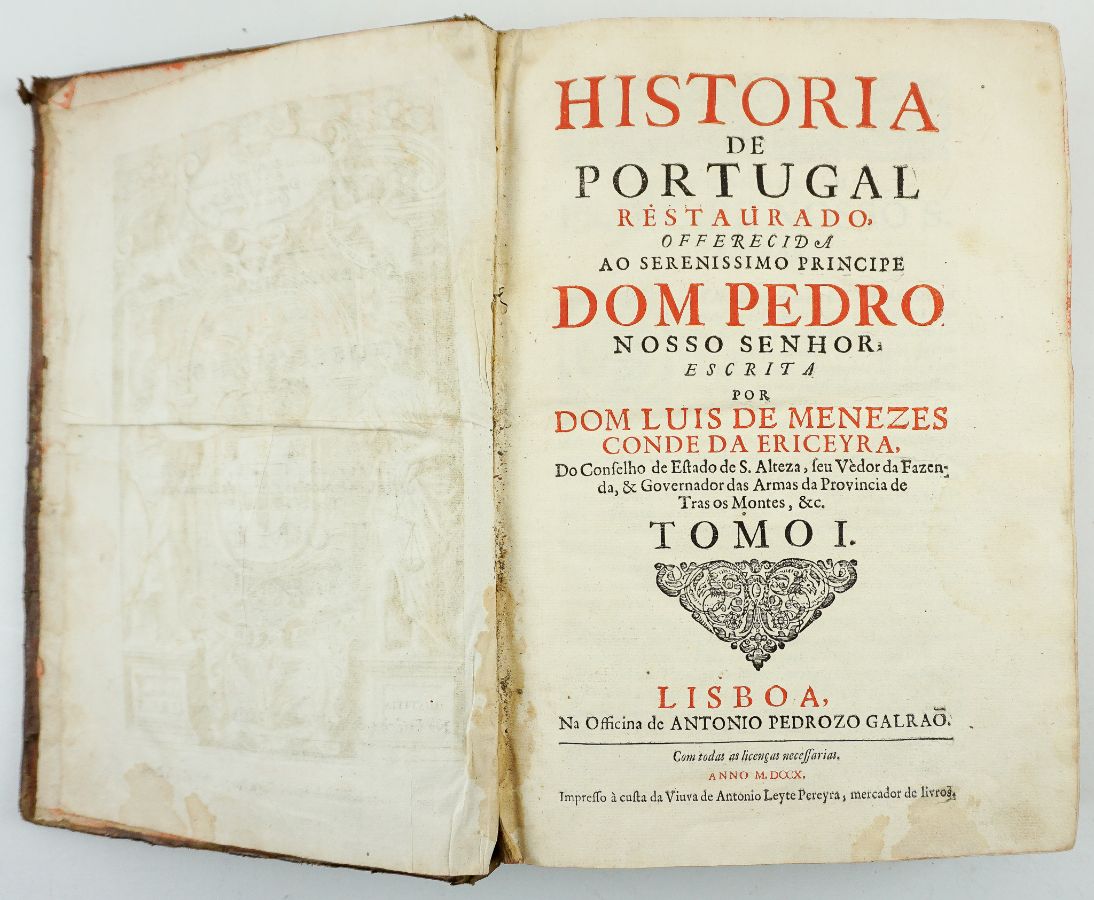 HISTORIA
DE
PORTUGAL
RESTAURADO,
OFFERECIDA
AO SERENISSIMO PRINCIPE
DOM PEDRO
NOSSO SENHOR;
ESCRITA
POR
DOM LUIS DE MENEZES
CONDE DA ERICEYRA,
Do Conſelho de Eſtado de S. Alteza, ſeu Vèdor da Fazen-
da, & Governador das Armas da Provincia de
Tras os Montes, &c.
TOMO I.
LISBOA,
Na Officina de ANTONIO PEDROZO GALRAÕ.
Com todas as licenças neceſſarias.
ANNO M. DCCX.
Impreſſo à cuſta da Viuva de Antonio Leyte Pereyra, mercador de livros.